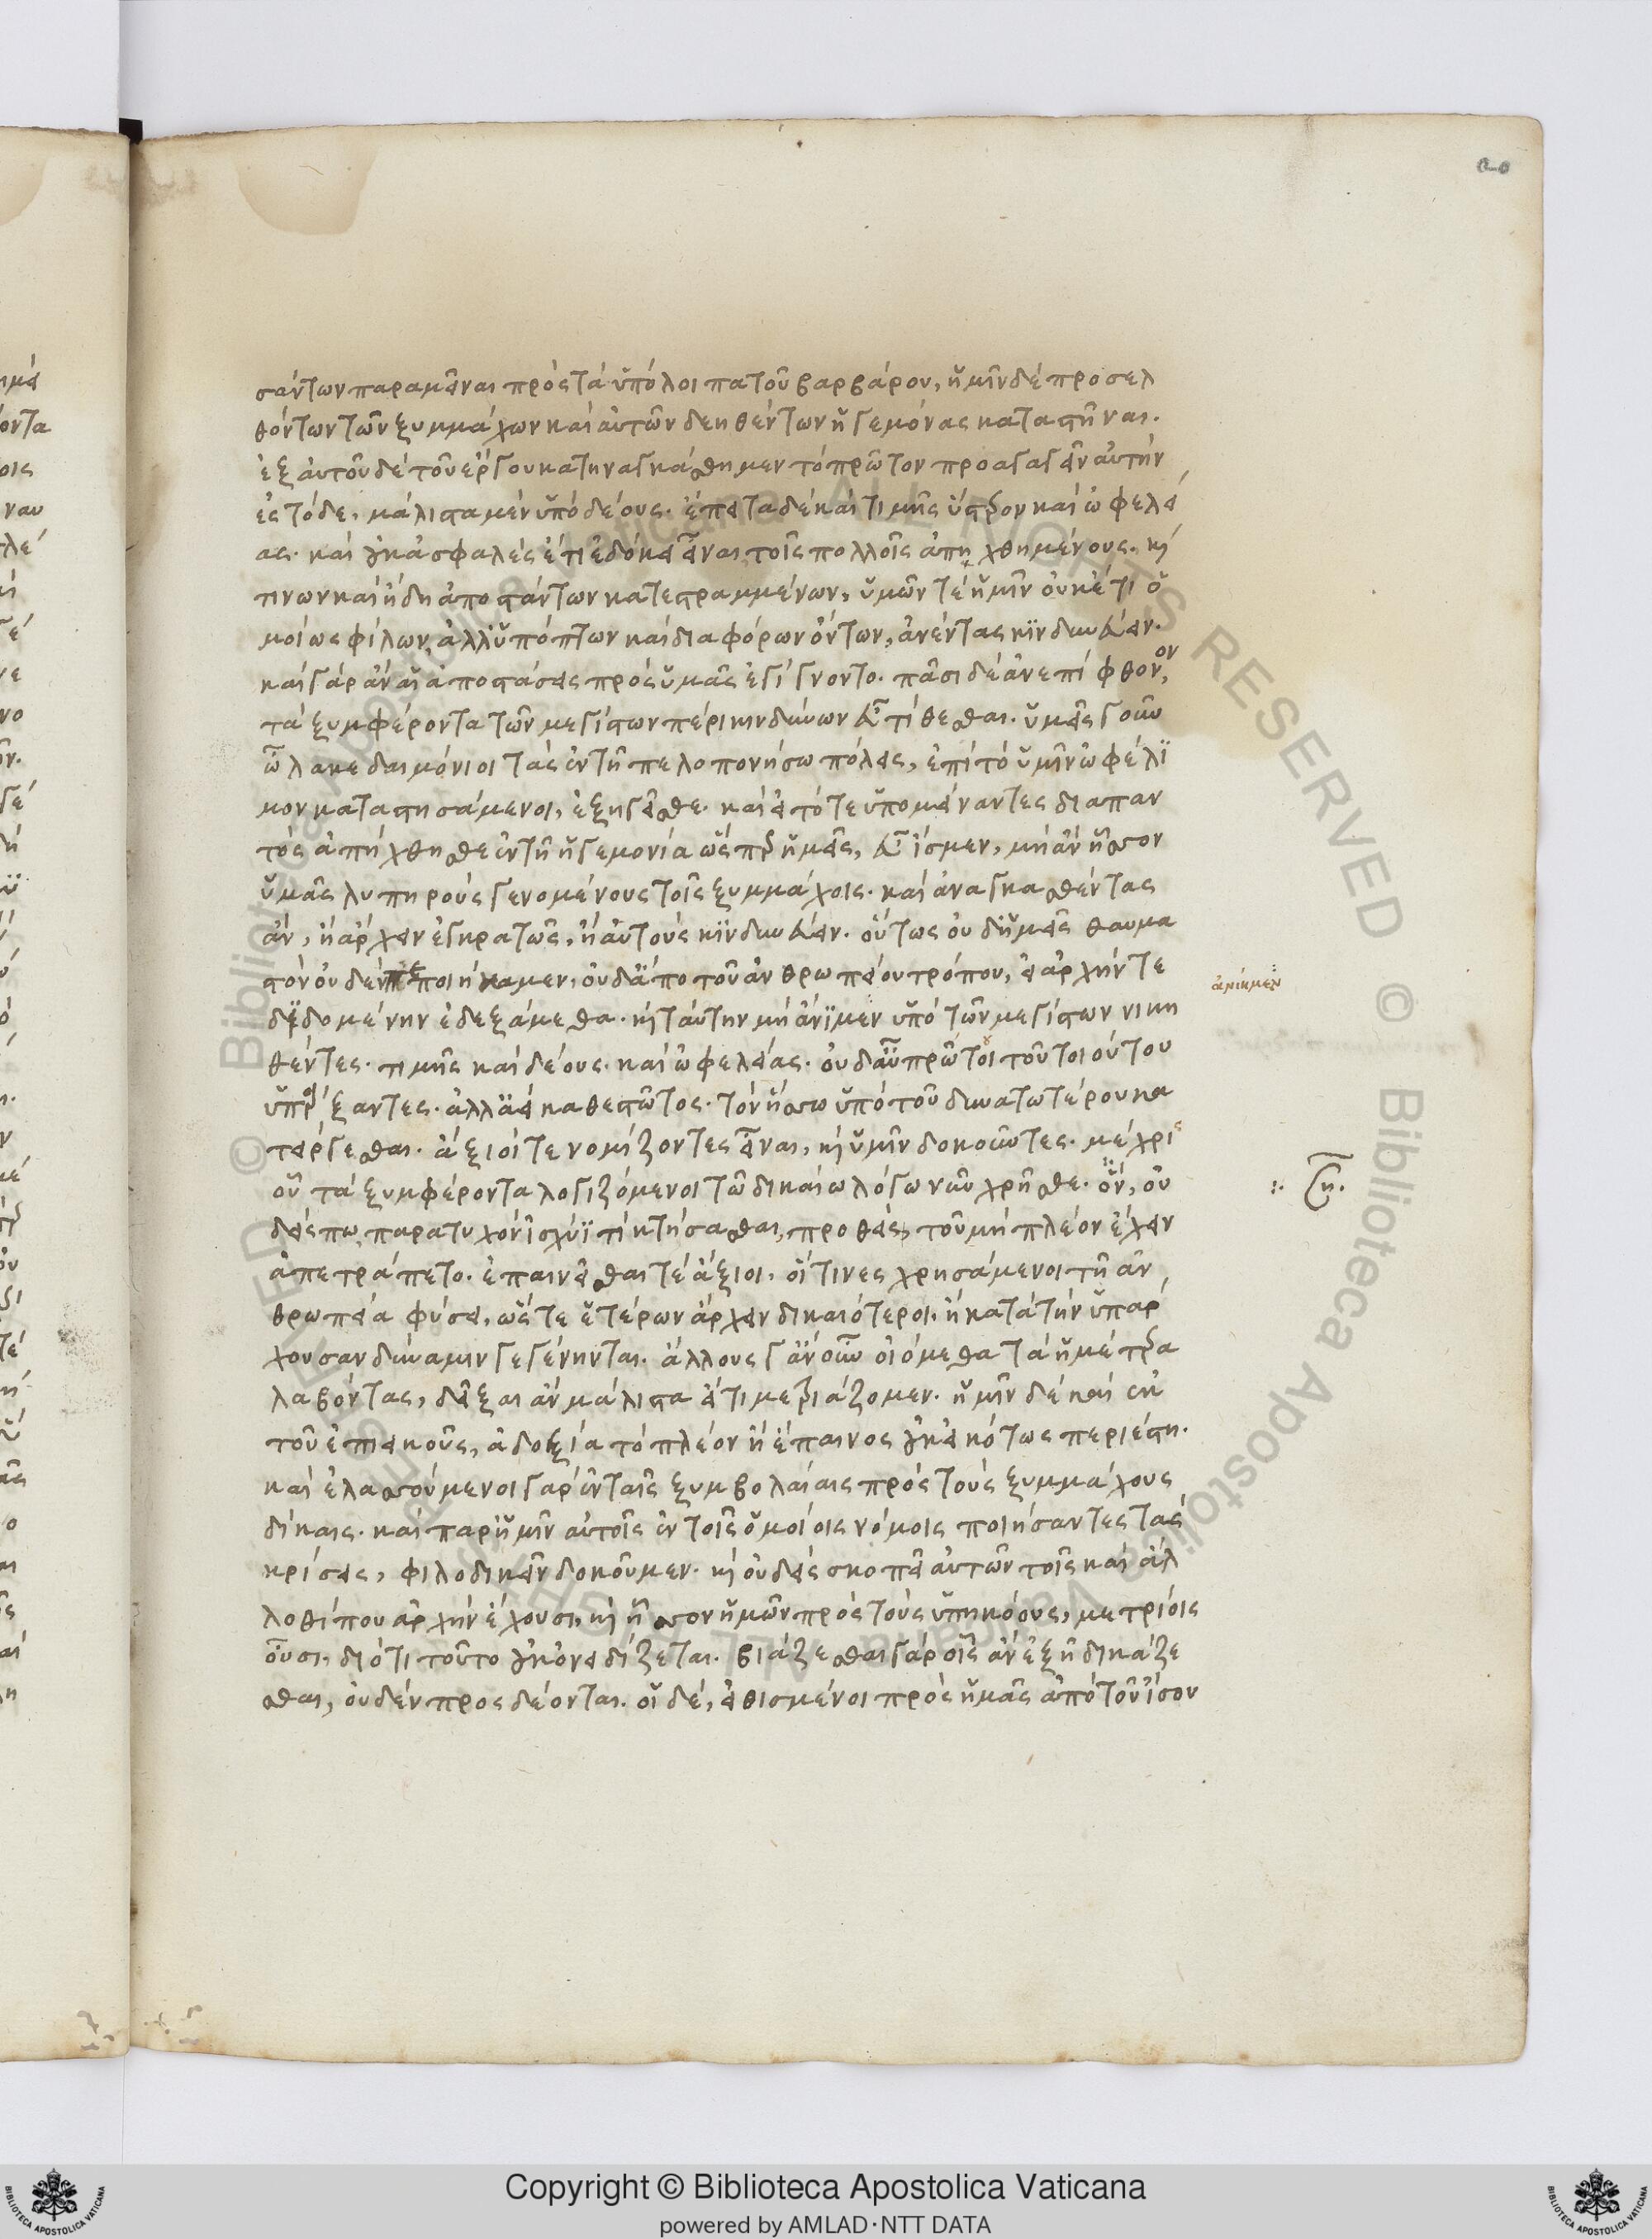 σάντων παραμεῖναι πρὸς τὰ ὑπόλοιπα τοῦ βαρβάρου, ἡμῖν δὲ προσελ
θόντων τῶν ξυμμάχων καὶ αὐτῶν δεηθέντων ἡγεμόνας καταστῆναι.
ἐξ αὐτοῦ δὲ τοῦ ἔργου κατηναγκάσθημεν τὸ πρῶτον προαγαγεῖν αὐτὴν
ἐς τόδε, μάλιστα μὲν ὑπὸ δέους. ἔπειτα δὲ καὶ τιμῆς ὕστερον καὶ ὠφελεί
ας. καὶ οὐκ ἀσφαλὲς ἔτι ἐδόκει εἶναι τοῖς πολλοῖς ἀπηχθημένους. καί
τινων καὶ ἤδη ἀποστάντων κατεστραμμένων, ὑμῶν τὲ ἡμῖν οὐκέτι ὁ
μοίως φίλων, ἀλλ' ὑπόπτων καὶ διαφόρων ὄντων, ἀνέντας κινδυνεύειν.
καὶ γὰρ ἂν αἱ ἀποστάσεις πρὸς ὑμᾶς ἐγίγνοντο. πᾶσι δὲ ἀνεπίφθονον,
τὰ ξυμφέροντα τῶν μεγίστων πέρι κινδύνων εὖ τίθεσθαι. ὑμεῖς γοῦν
ὦ λακεδαιμόνιοι τὰς ἐν τῆ πελοποννήσω πόλεις, ἐπὶ τὸ ὑμῖν ὠφέλι
μον καταστησάμενοι, ἐξηγεῖσθε. καὶ εἰ τότε ὑπομείναντες διαπαν
τὸς ἀπήχθησθε ἐν τῆ ἡγεμονία ὥσπερ ἡμεῖς, εὖ ἴσμεν, μὴ ἂν ἧσσον
ὑμᾶς λυπηροὺς γενομένους τοῖς ξυμμάχοις. καὶ ἀναγκασθέντας
ἂν, ἢ ἄρχειν ἐγκρατῶς, ἢ αὐτοὺς κινδυνεύειν. οὕτως οὐδ' ἡμεῖς θαυμα
στὸν οὐδὲν πεποιήκαμεν, οὐδ' ἀπὸ τοῦ ἀνθρωπείου τρόπου, εἰ ἀρχήν τε
διδομένην ἐδεξάμεθα. καὶ ταύτην μὴ ἀνῖμεν ὑπὸ τῶν μεγίστων νικη
ἀνίκμεν
θέντες. τιμῆς καὶ δέους. καὶ ὠφελείας. οὐδ' αὖ πρῶτοι τοῦ τοιούτου
ὑπάρξαντες. ἀλλ' ἀεὶ καθεστῶτος. τὸν ἥσσω ὑπὸ τοῦ δυνατωτέρου κα
τείργεσθαι. ἄξιοί τε νομίζοντες εἶναι, καὶ ὑμῖν δοκοῦντες. μέχρις
οὗ τὰ ξυμφέροντα λογιζόμενοι τῶ δικαίω λόγω νῦν χρῆσθε. ὃν, οὐ
δείς πω παρατυχὸν ἰσχύϊ τὶ κτήσασθαι, προθεὶς, τοῦ μὴ πλέον ἔχειν
ἀπετράπετο. ἐπαινεῖσθαι τὲ ἄξιοι. οἵτινες χρησάμενοι τῆ ἀν
θρωπεία φύσει, ὥστε ἑτέρων ἄρχειν δικαιότεροι, ἢ κατὰ τὴν ὑπάρ
χουσαν δύναμιν γεγένηνται. ἄλλους γ' ἂν οὖν οἰόμεθα τὰ ἡμέτερα
λαβόντας, δεῖξαι ἂν μάλιστα εἴ τι μετριάζομεν. ἡμῖν δὲ καὶ ἐκ
τοῦ ἐπιεικοῦς, ἀδοξία τὸ πλέον ἢ ἔπαινος οὐκ εἰκότως περιέστη.
καὶ ἐλασσούμενοι γὰρ ἐν ταῖς ξυμβολαίαις πρὸς τοὺς ξυμμάχους
δίκαις. καὶ παρ' ἡμῖν αὐτοῖς ἐν τοῖς ὁμοίοις νόμοις ποιήσαντες τὰς
κρίσεις, φιλοδικεῖν δοκοῦμεν. καὶ οὐδεὶς σκοπεῖ αὐτῶν τοῖς καὶ ἄλ
λοθί που ἀρχὴν ἔχουσι, καὶ ἧσσον ἡμῶν πρὸς τοὺς ὑπηκόους, μετρίοις
οὖσι, διότι τοῦτο οὐκ ὀνειδίζεται. βιάζεσθαι γὰρ οἷς ἂν ἐξῆ δικάζε
σθαι, οὐδὲν προσδέονται. οἱ δὲ, εἰθισμένοι πρὸς ἡμᾶς ἀπὸ τοῦ ἴσου
Copyright © Biblioteca Apostolica Vaticana
powered by AMLAD·NTT DATA